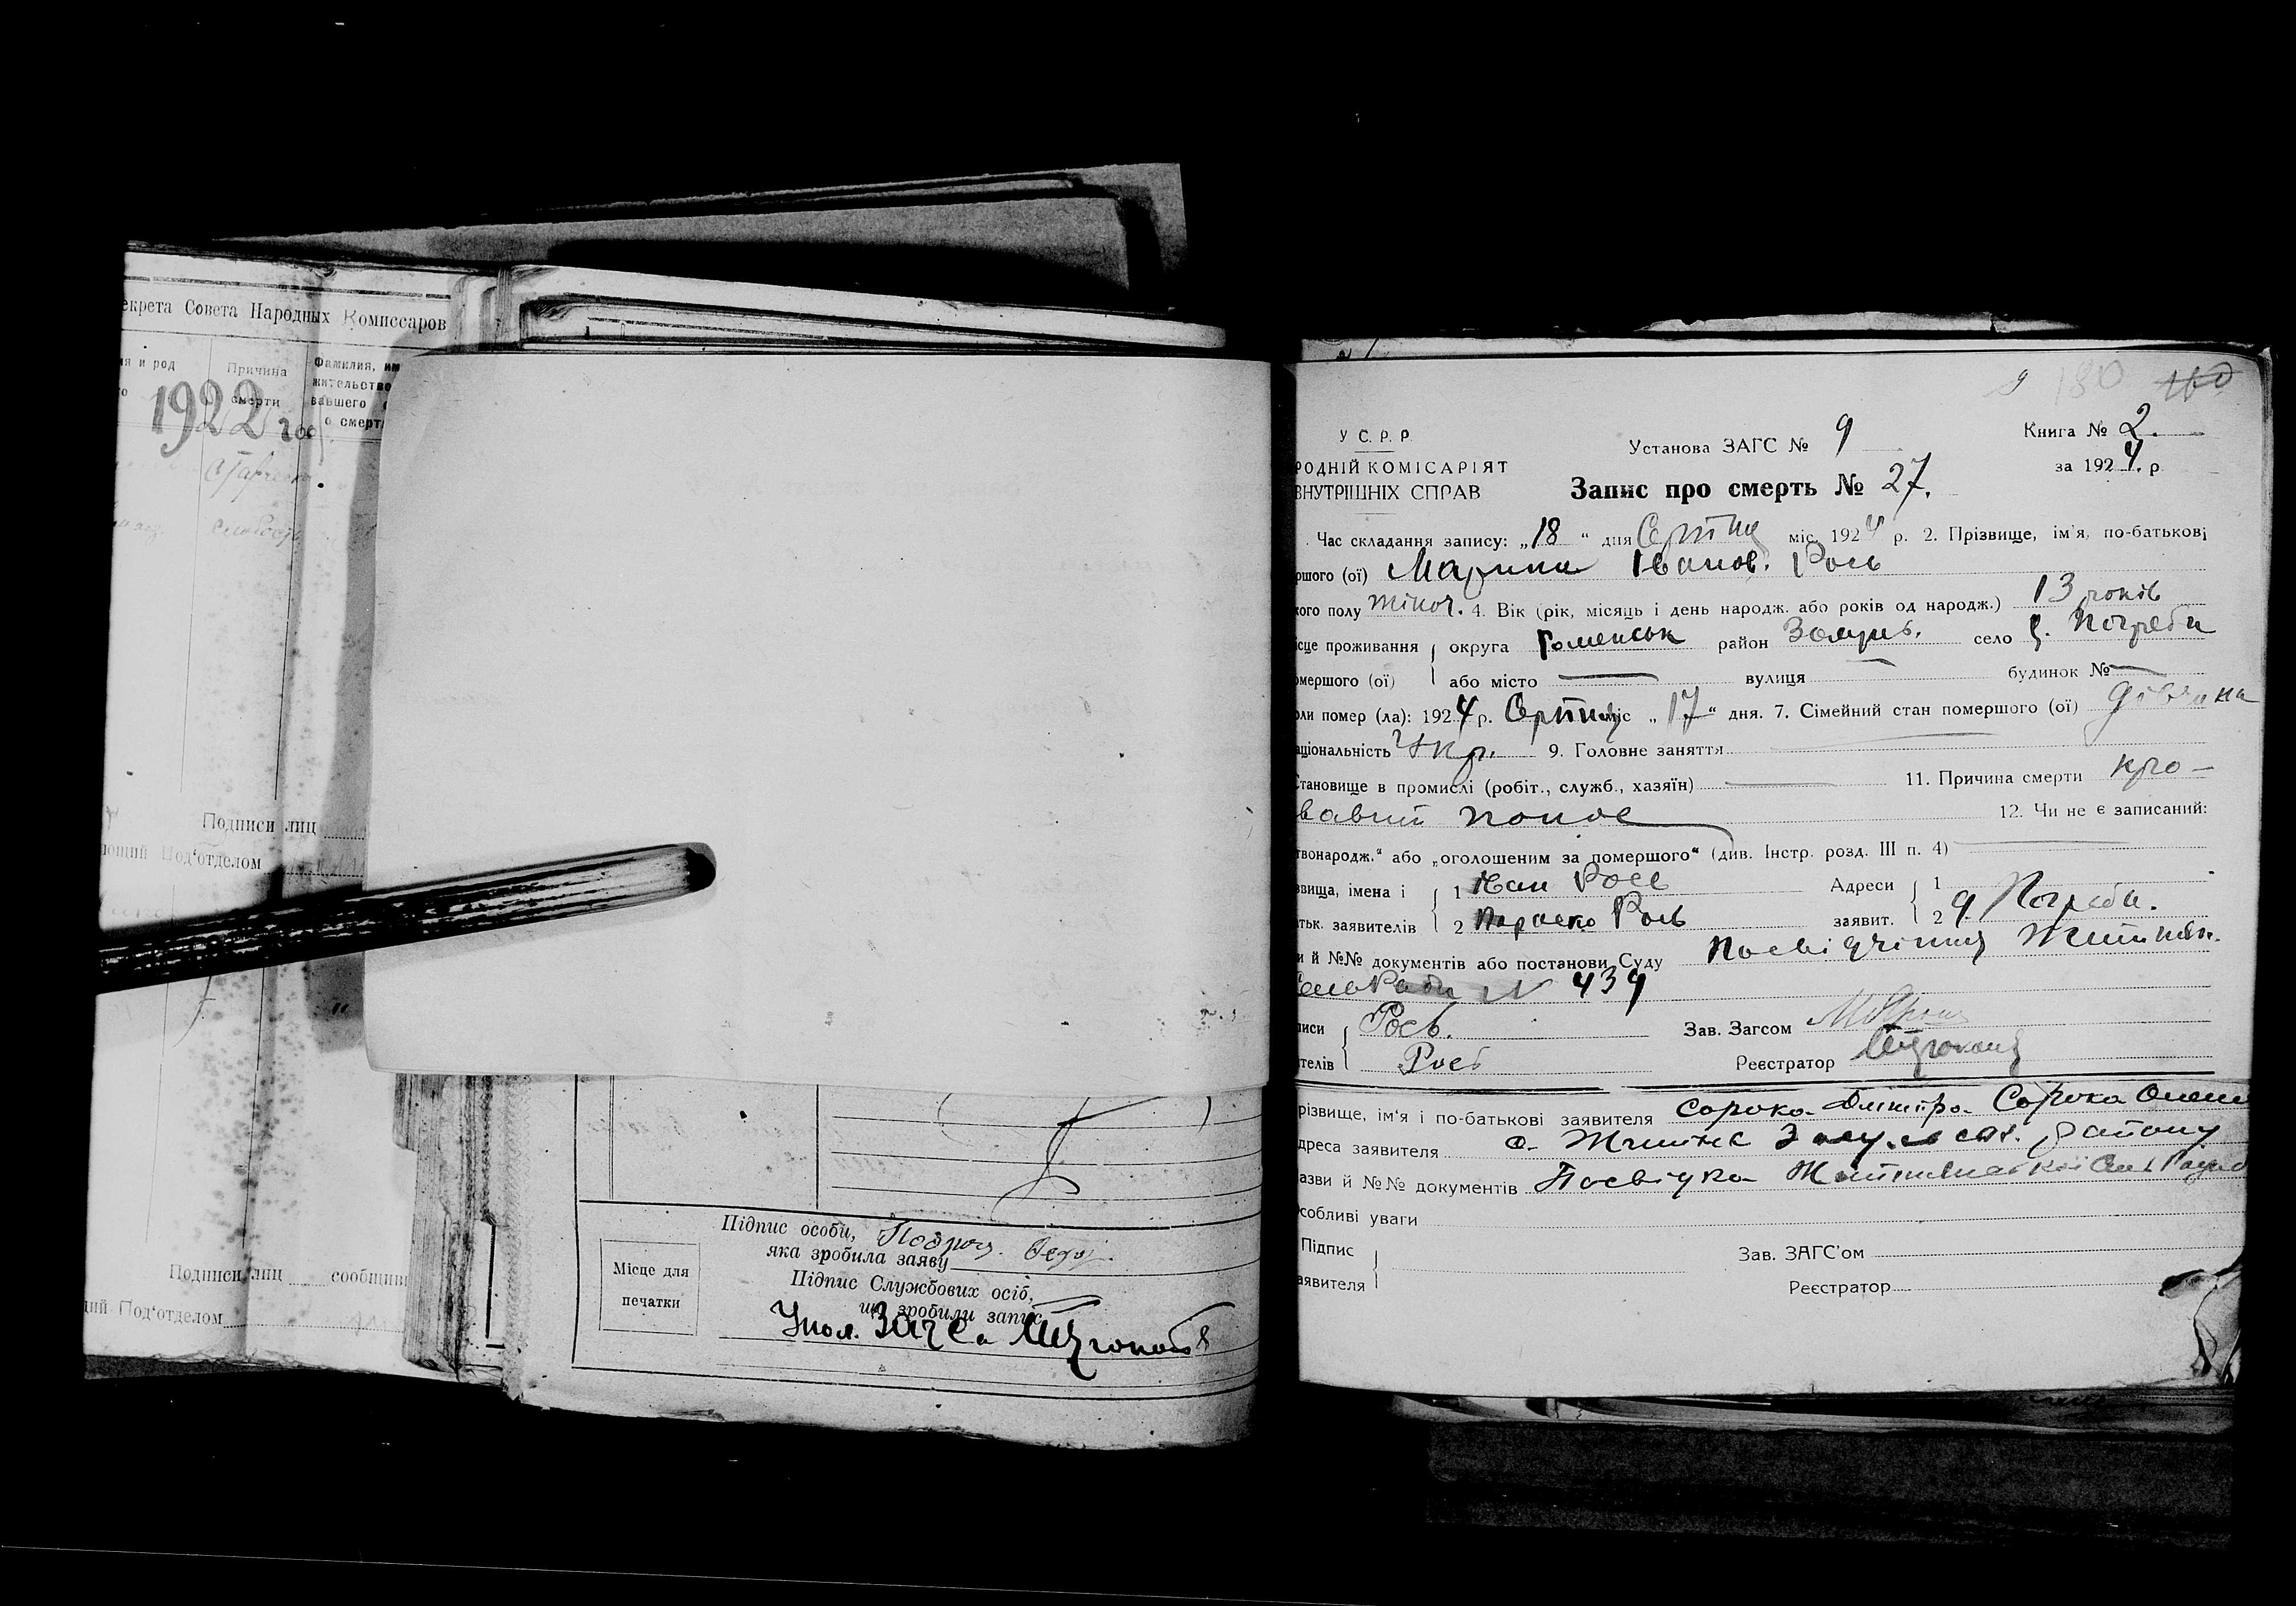 екрета Совета Народных Комиссаров
ия и род
Причина
смерти
Фамилия, им
жительство
вавшего
о смерт
1922 год
Подписи лиц
ющий Под'отделом
Подписи лиц сообщив
ций Под'отделом
Підпис особи,
яка зробила заяву
Місце для
печатки
Підпис Службових осіб,
що зробили запис
180
У С. Р. Р.
РОДНІЙ КОМІСАРІЯТ
ВНУТРІШНІХ СПРАВ
Установа ЗАГС № 9
Книга № 2.
за 1924 р
Запис про смерть № 27.
Час складання запису: „18“ дня Серпня міс. 1924 р. 2. Прізвище, ім'я, по-батькові
ршого (ої) Марина Іванов. Рось
кого полу жіноч. 4. Вік (рік, місяць і день народж. або років од народж.) 13 років
ісце проживання округа Роменськ район село с. Погреби
омершого (ої) або місто — вулиця — будинок № —
оли помер (ла): 1924 р. Серпня міс „17“ дня. 7. Сімейний стан помершого (ої) дівчина
аціональність Укр. 9. Головне заняття
Становище в промислі (робіт., служб., хазяїн) — 11. Причина смерти кро-
вавий понос 12. Чи не є записаний:
твонародж.“ або „оголошеним за помершого“ (див. Інстр. розд. III п. 4)
звища, імена і 1 Іван Рось Адреси 1
атьк. заявителів 2 Параска Рось заявит. 2 с. Погреби.
и й №№ документів або постанови Суду Посвідчіння
сельРади № 439
писи Рось. Зав. Загсом
телів Рось Реєстратор
різвище, ім'я і по-батькові заявителя Сорока Дмитро Сорока
дреса заявителя с. району
азви й №№ документів Посвідка
собливі уваги
Підпис
аявителя
Зав. ЗАГС'ом
Реєстратор